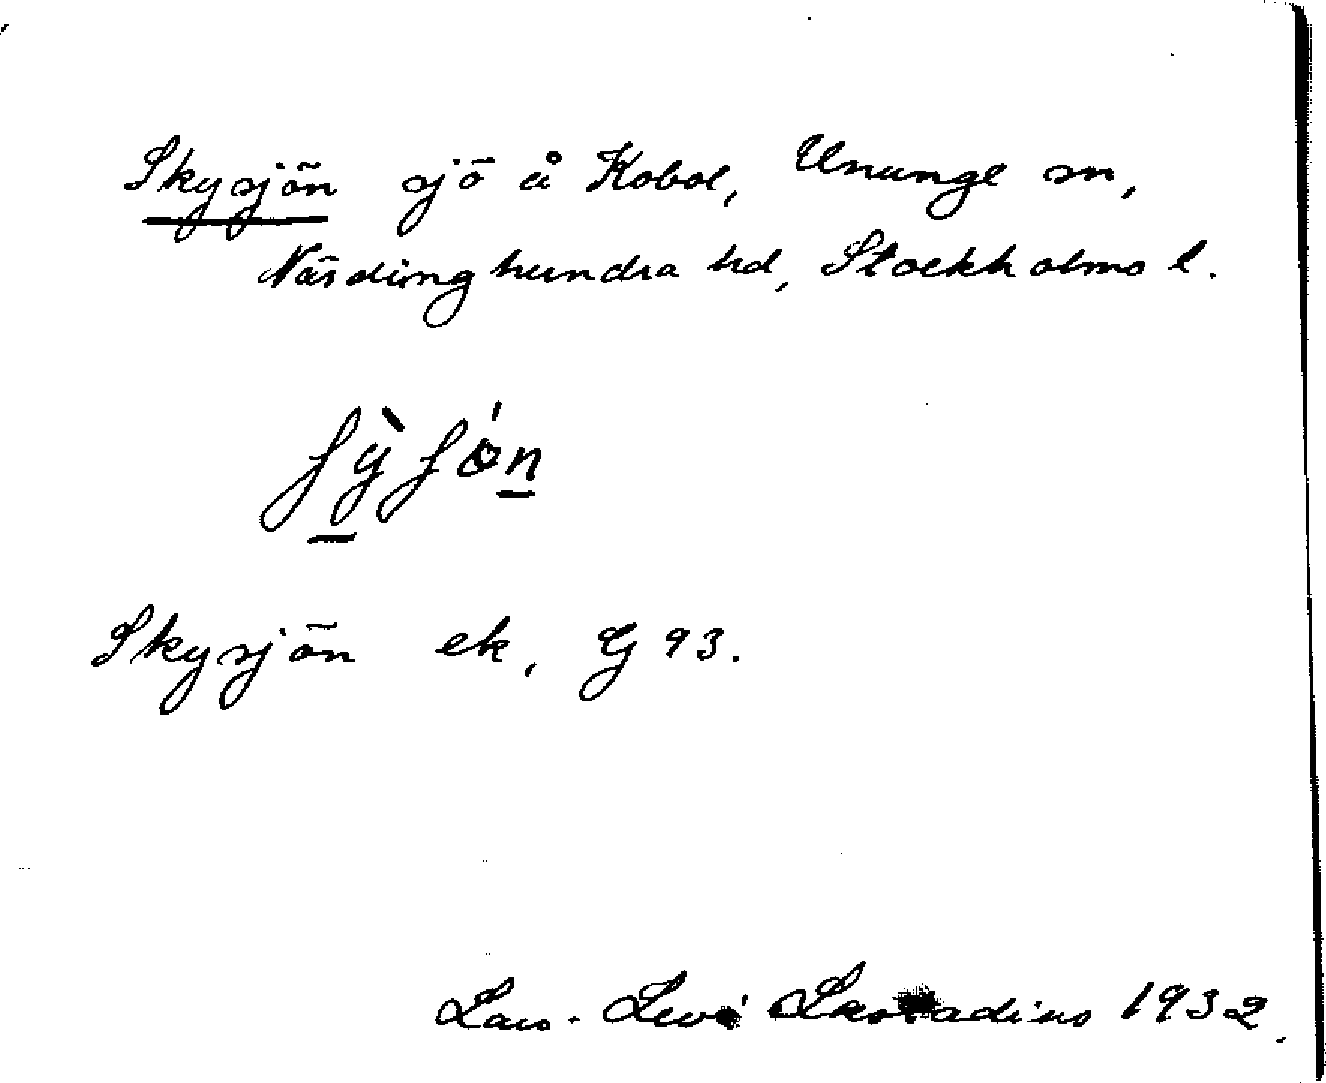 Skysjön sjö å Kobol, Ununge sn,
Näsdinghundra hd, Stockholms l.
ʃỳʃón
Skysjön ek, G 93.
Lars-Levi Laestadius 1932.